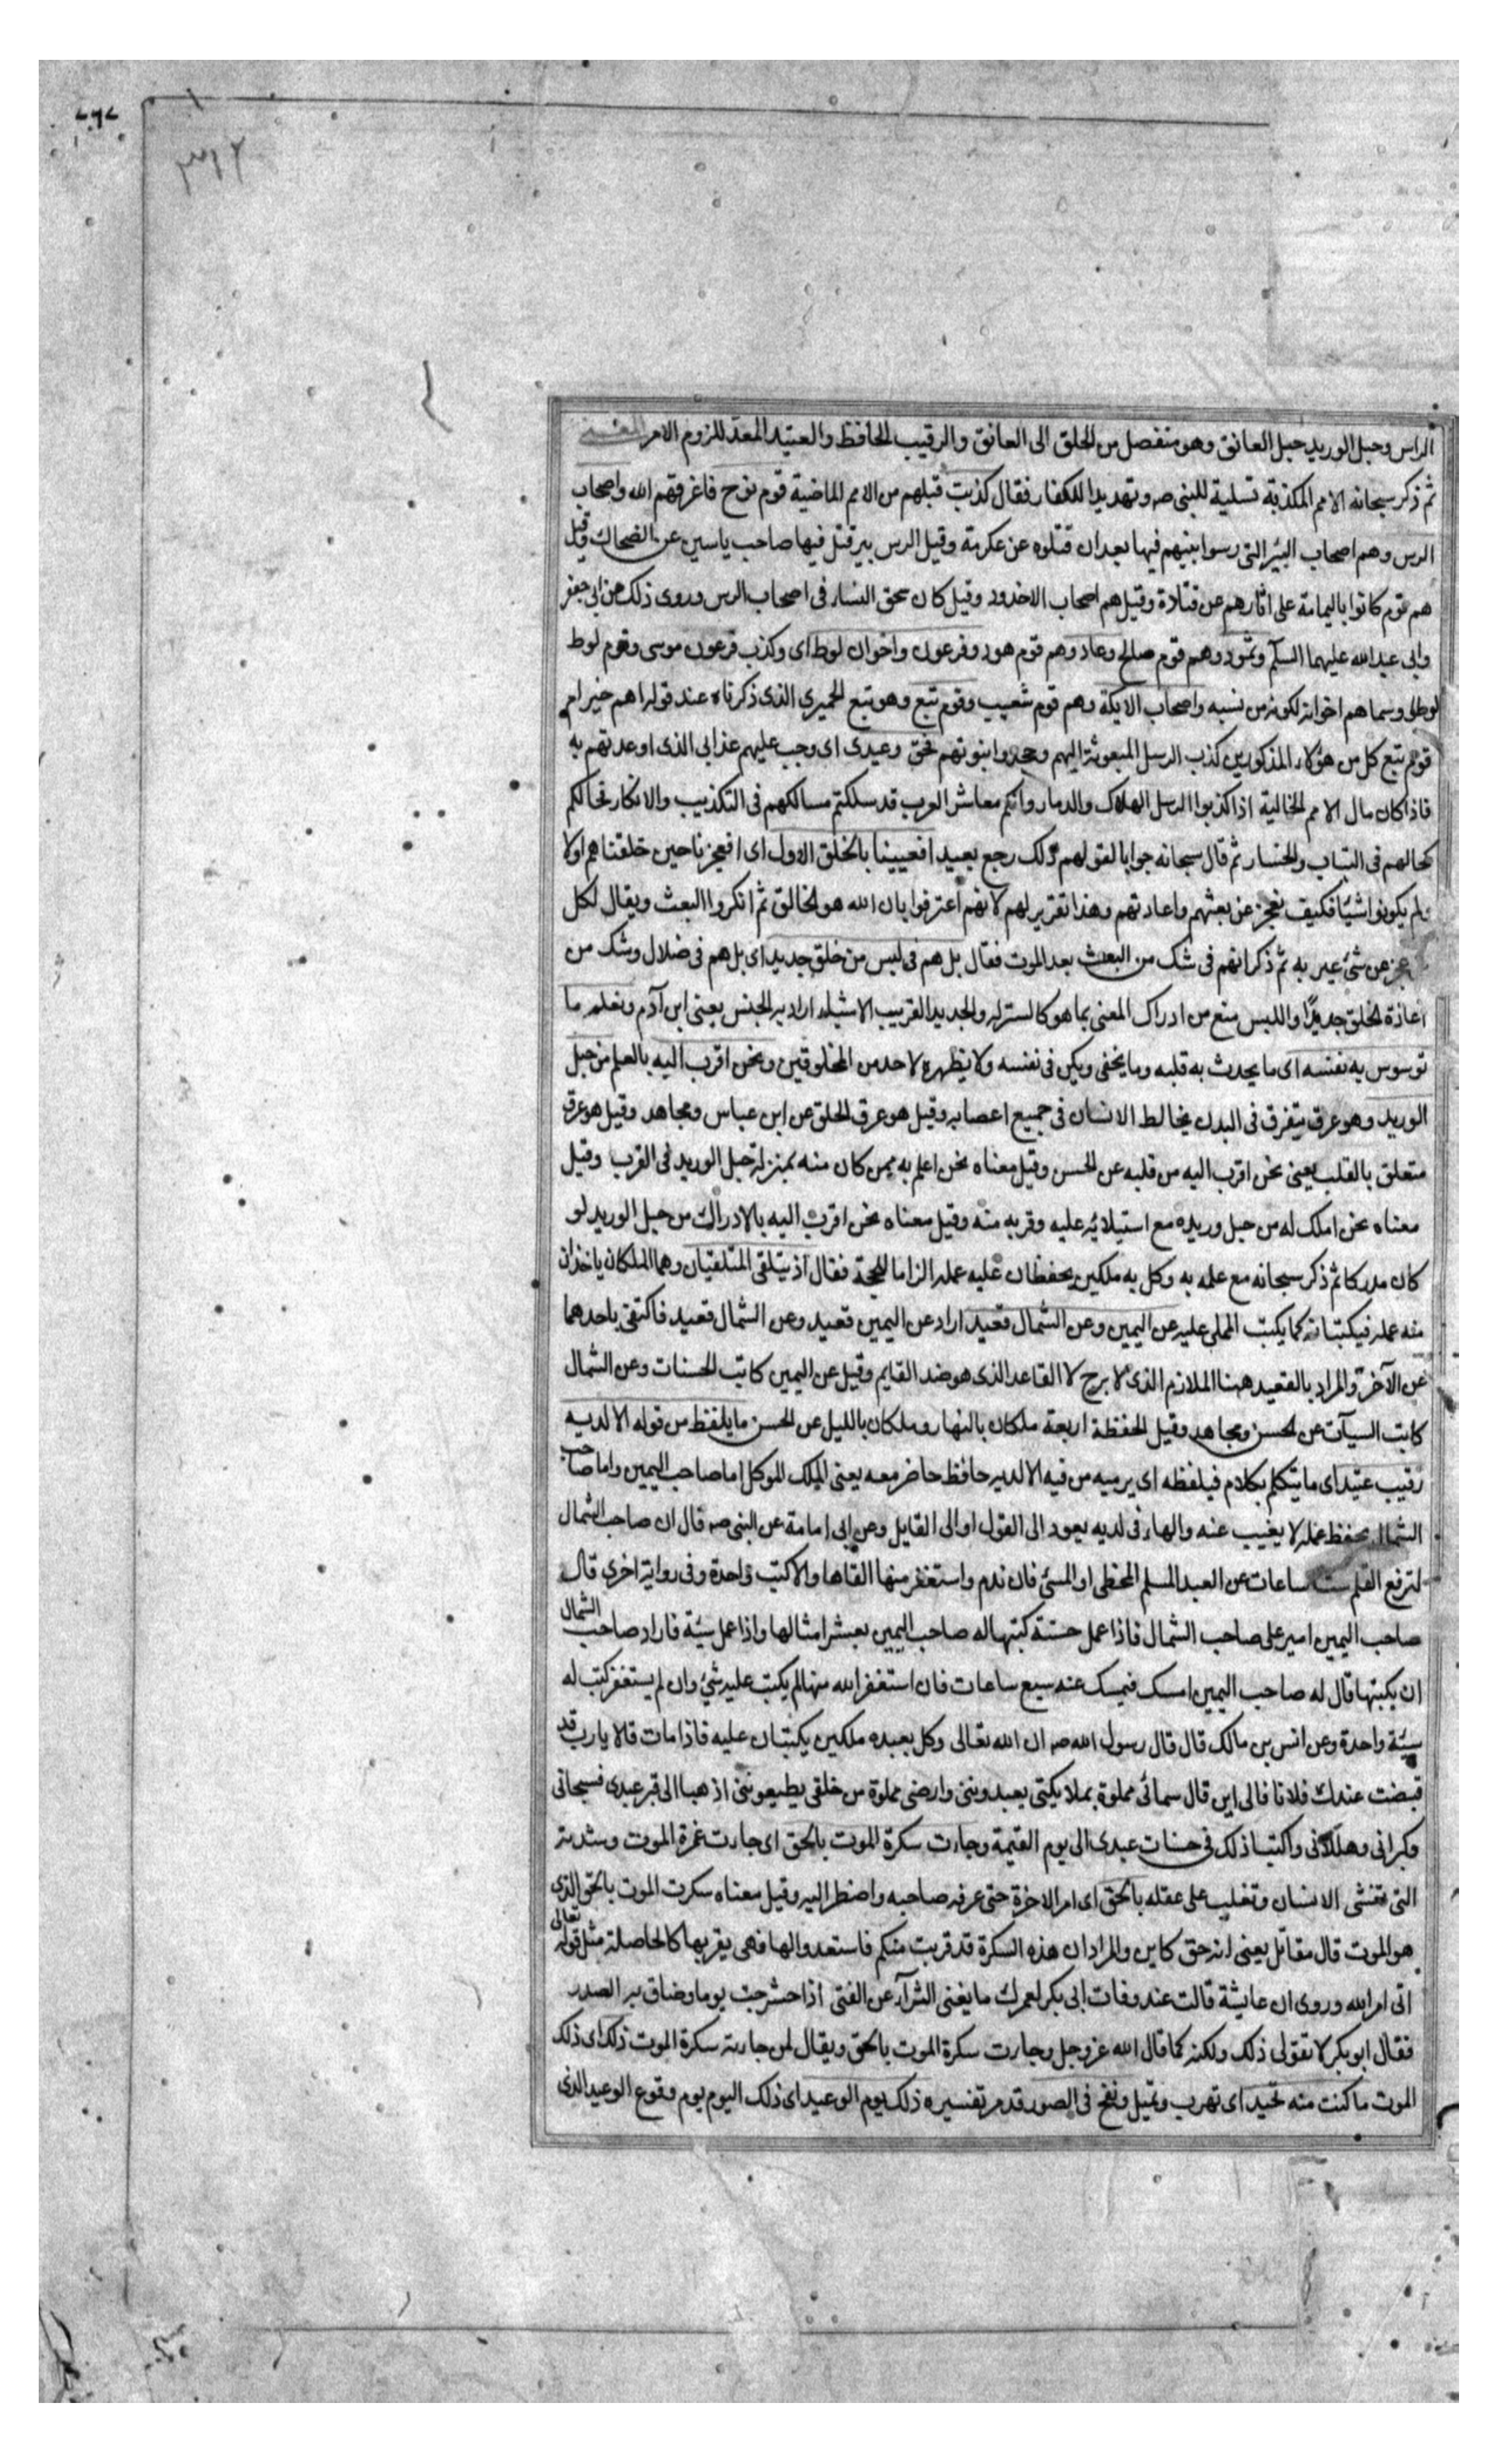 ٣١٢
الراس وحبل الوريد حبل العاتق وهو منفصل من الحلق الى العاتق والرقيب الحافظ والعتيد المعد للزوم الامر المعنى
ثم ذكر سبحانه الامم المكذبة تسلية للنبى صه وتهديدا للكفار فقال كذبت قبلهم من الامم الماضية قوم نوح فاغرقهم الله واصحاب
الرس وهم اصحاب البئر التى رسوا نبيهم فيها بعد ان قتلوه عن عكرمة وقيل الرس بير قتل فيها صاحب ياسين عن الضحاك وقيل
هم قوم كانوا باليمامة على اثارهم عن قتادة وقيل هم اصحاب الاخدود وقيل كان سحق النساء فى اصحاب الرس وروى ذلك عن ابى جعفر
وابى عبد الله عليهما السلم وثمود وهم قوم صالح وعاد وهم قوم هود وفرعون واخوان لوط اى وكذب فرعون موسى وقوم لوط
لوطا وسماهم اخوانه لكونهم من نسبه واصحاب الايكة وهم قوم شعيب وقوم تبع وهو تبع الحميرى الذى ذكرناه عند قوله اهم خير ام
قوم تبع كل من هؤلاء المذكورين كذب الرسل المبعوثة اليهم وجحدوا نبوتهم فحق وعيدى اى وجب عليهم عذابى الذى اوعدتهم به
فاذا كان مال الامم الخالية اذا كذبوا الرسل الهلاك والدمار وانكم معاشر العرب قد سلكتم مسالكهم فى التكذيب والانكار فحالكم
كحالهم فى التباب والخسار ثم قال سبحانه جوابا لقولهم ذلك رجع بعيد افعيينا بالخلق الاول اى افعجزنا حين خلقناهم اولا
ولم يكونوا شيئا فكيف نعجز عن بعثهم واعادتهم وهذا تقرير لهم لانهم اعترفوا بان الله هو الخالق ثم انكروا البعث ويقال لكل
عجز عن شئ عيى به ثم ذكر انهم فى شك من البعث بعد الموت فقال بل هم فى لبس من خلق جديد اى بل هم فى ضلال وشك من
اعادة الخلق جديدا واللبس منع من ادراك المعنى بما هو كالستر له والجديد القريب الانشاء اراد به الجنس يعنى ابن آدم ونعلم ما
توسوس به نفسه اى ما يحدث به قلبه وما يخفى ويكن فى نفسه ولا يظهره لاحد من المخلوقين ونحن اقرب اليه بالعلم من حبل
الوريد وهو عرق يتفرق فى البدن يخالط الانسان فى جميع اعضائه وقيل هو عرق الحلق عن ابن عباس ومجاهد وقيل هو عرق
متعلق بالقلب يعنى نحن اقرب اليه من قلبه عن الحسن وقيل معناه نحن اعلم به ممن كان منه بمنزلة حبل الوريد فى القرب وقيل
معناه نحن املك له من حبل وريده مع استيلائه عليه وقربه منه وقيل معناه نحن اقرب اليه بالادراك من حبل الوريد لو
كان مدركا ثم ذكر سبحانه مع علمه به وكل به ملكين يحفظان عليه عمله الزاما للحجة فقال اذ يتلقى المتلقيان وهما الملكان ياخذان
منه عمله فيكتبانه كما يكتب المملى عليه عن اليمين وعن الشمال قعيد اراد عن اليمين قعيد وعن الشمال قعيد فاكتفى باحدهما
عن الآخر والمراد بالقعيد ههنا الملازم الذى لا يبرح لا القاعد الذى هو ضد القايم وقيل عن اليمين كاتب الحسنات وعن الشمال
كاتب السيآت عن الحسن ومجاهد وقيل الحفظة اربعة ملكان بالنهار وملكان بالليل عن الحسن ما يلفظ من قوله الا لديه
رقيب عتيد اى ما يتكلم بكلام فيلفظه اى يرميه من فيه الا لديه حافظ حاضر معه يعنى الملك الموكل اما صاحب اليمين واما صاحب
الشمال يحفظ عمله لا يغيب عنه والهاء فى لديه يعود الى القول او الى القايل وعن ابى امامة عن النبى صه قال ان صاحب الشمال
لترفع القلم ست ساعات عن العبد المسلم المخطى او المسئ فان ندم واستغفر منها القاها والا كتب واحدة وفى رواية اخرى قال
صاحب اليمين امير على صاحب الشمال فاذا عمل حسنة كتبها له صاحب اليمين بعشر امثالها واذا عمل سيئة فاراد صاحب الشمال
ان يكتبها قال له صاحب اليمين امسك فيمسك عنه سبع ساعات فان استغفر الله منها لم يكتب عليه شئ وان لم يستغفر كتب له
سيئة واحدة وعن انس بن مالك قال قال رسول الله صه ان الله تعالى وكل بعبده ملكين يكتبان عليه فاذا مات قالا يا رب قد
قبضت عبدك فلانا فالى اين قال سمائى مملوة بملايكتى يعبدوننى وارضى مملوة من خلقى يطيعوننى اذهبا الى قبر عبدى فسبحانى
وكبرانى وهللانى واكتبا ذلك فى حسنات عبدى الى يوم القيمة وجاءت سكرة الموت بالحق اى جاءت غمرة الموت وشدته
التى تغشى الانسان وتغلب على عقله بالحق اى امر الاخرة حتى عرفه صاحبه واضطر اليه وقيل معناه سكرت الموت بالحق الذى
هو الموت قال مقاتل يعنى انه حق كاين والمراد ان هذه السكرة قد قربت منكم فاستعدوا لها فهى بقربها كالحاصلة مثل قوله تعالى
اتى امر الله وروى ان عايشة قالت عند وفات ابى بكر لعمرك ما يغنى الثراء عن الفتى اذا حشرجت يوما وضاق به الصدر
فقال ابو بكر لا تقولى ذلك ولكنه كما قال الله عز وجل وجاءت سكرة الموت بالحق ويقال لمن جاءته سكرة الموت ذلك اى ذلك
الموت ما كنت منه تحيد اى تهرب وتميل ونفخ فى الصور قد مر تفسيره ذلك يوم الوعيد اى ذلك اليوم يوم وقوع الوعيد الذى